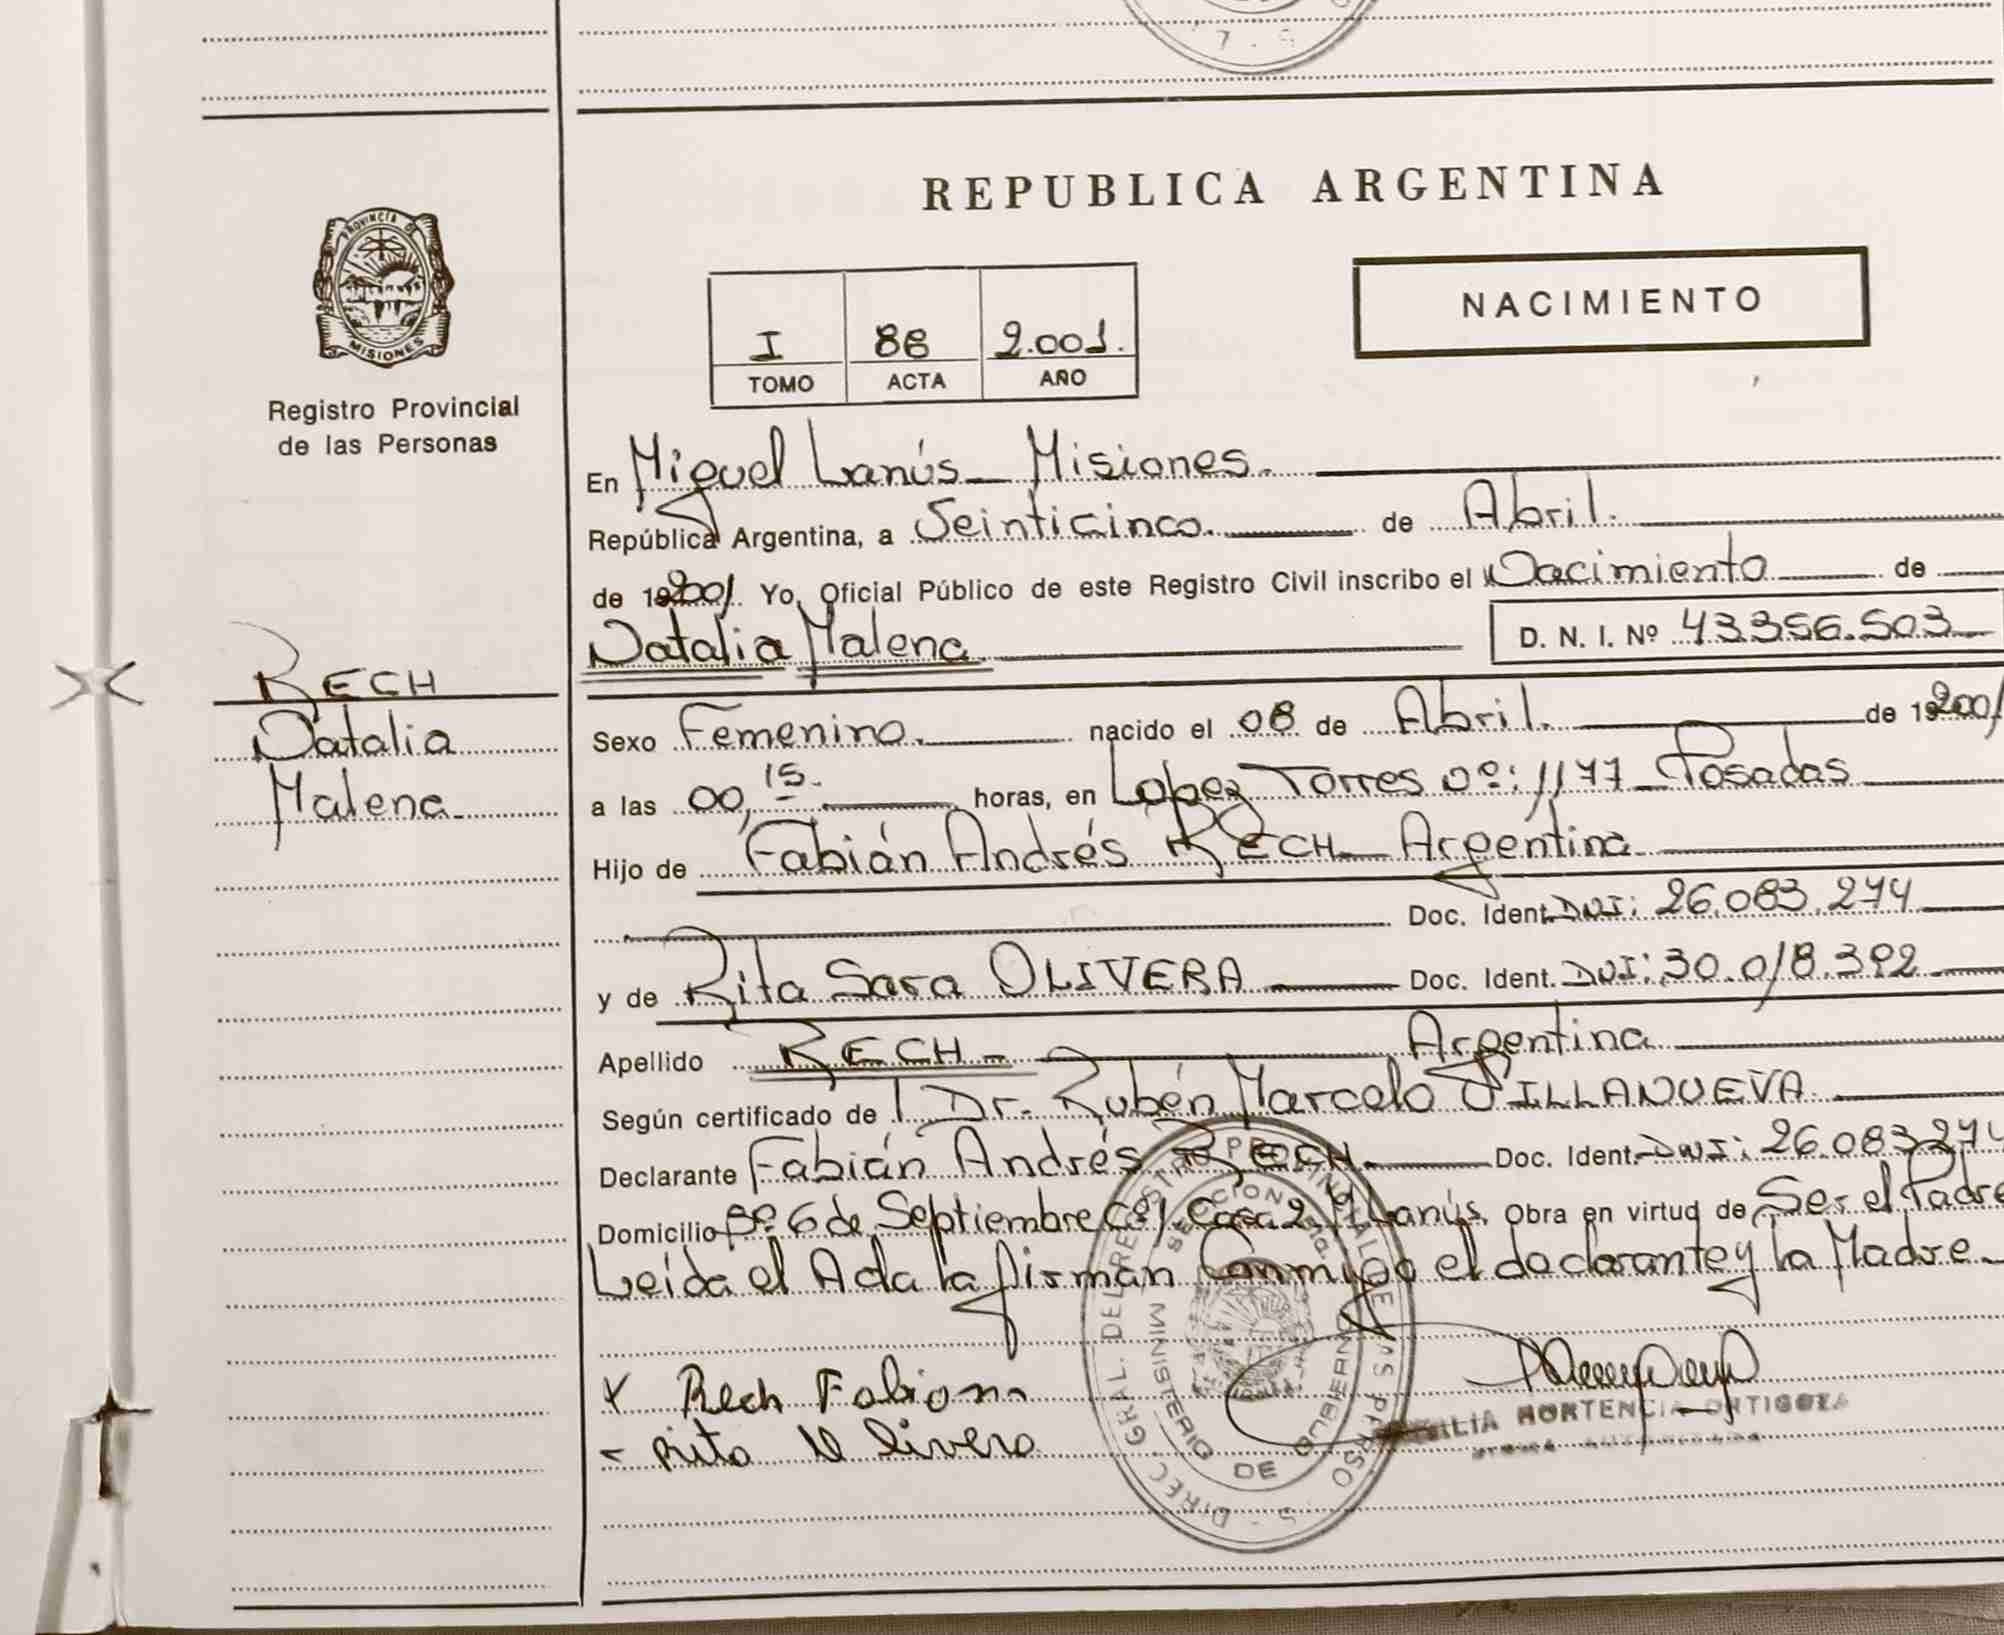 REPUBLICA ARGENTINA
PROVINCIA DE
MISIONES
Registro Provincial
de las Personas
I 88 2.001.
TOMO ACTA AÑO
NACIMIENTO
En Miguel Lanús - Misiones.
República Argentina, a Veinticinco. de Abril.
de 2001. Yo, Oficial Público de este Registro Civil inscribo el Nacimiento de
Natalia Malena D. N. I. Nº 43.356.503
RECH
Natalia
Malena
Sexo Femenino. nacido el 08 de Abril. de 2001
a las 00,15. horas, en Lopez Torres nº: 1177 - Posadas
Hijo de Fabián Andrés RECH - Argentina
Doc. Ident. DNI: 26.083.274
y de Rita Sara OLIVERA Doc. Ident. DNI: 30.018.392
Apellido RECH - Argentina
Según certificado de Dr. Rubén Marcelo VILLANUEVA
Declarante Fabián Andrés RECH Doc. Ident. DNI: 26.083.274
Domicilio Bº 6 de Septiembre Casa 2 Lanús. Obra en virtud de Ser el Padre
Leída el Acta la firman Conmigo el declarante y la Madre -
x Rech Fabian
- Rita Olivera
HORTENCIA ORTIGOZA
DIREC. GRAL. DEL REGISTRO PROVINCIAL DE LAS PERSONAS
MINISTERIO DE GOBIERNO